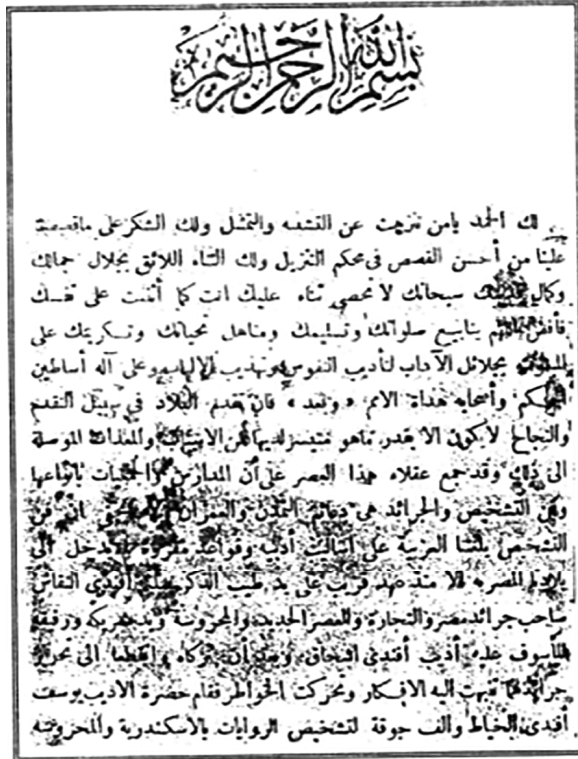 بسم الله الرحمن الرحيم
لك الحمد يامن تنزهت عن التشبه والتمثل ولك الشكر على ماقصصته
علينا من أحسن القصص فى محكم التنزيل ولك الثناء اللائق بجلال جمالك
وكمال سبحانك لا نحصى ثناء عليك انت كما أثنيت على نفسك
ينابيع صلواتك وتسليمك ومناهل تحياتك وتسكريتك على
بجلائل الآداب لتأديب النفوس وتهذيب الالباب وعلى آله أساطين
الحكم وأصحابه هداة الامم «وبعد» فان تقدم البلاد فى سبيل التقدم
والنجاح لا يكون الا بقدر ماهو متيسر لديها من الاسباب والمعدات الموصلة
الى ذلك وقد جمع عقلاء هذا العصر على أن المدارس والجمعيات بانواعها
وفن التشخيص والجرائد هى دعائم التمدن والعمران فن
التشخيص بلغتنا العربية على أدبية وقواعد مقررة لم يدخل الى
بلادنا المصرية الا منذ عهد قريب على يد طيب الذكر أفندى النقاش
صاحب جرائد مصر والتجارة والعصر الجديد والمحروسة ورفيقه
المأسوف عليه أديب أفندى اسحاق وبعد أن تركاه وانقطعا الى تحرير
جرائدهما تنبهت اليه الافكار وتحركت الخواطر فقام حضرة الاديب يوسف
أفندى الخياط وألف جوقة لتشخيص الروايات بالاسكندرية والمحروسة